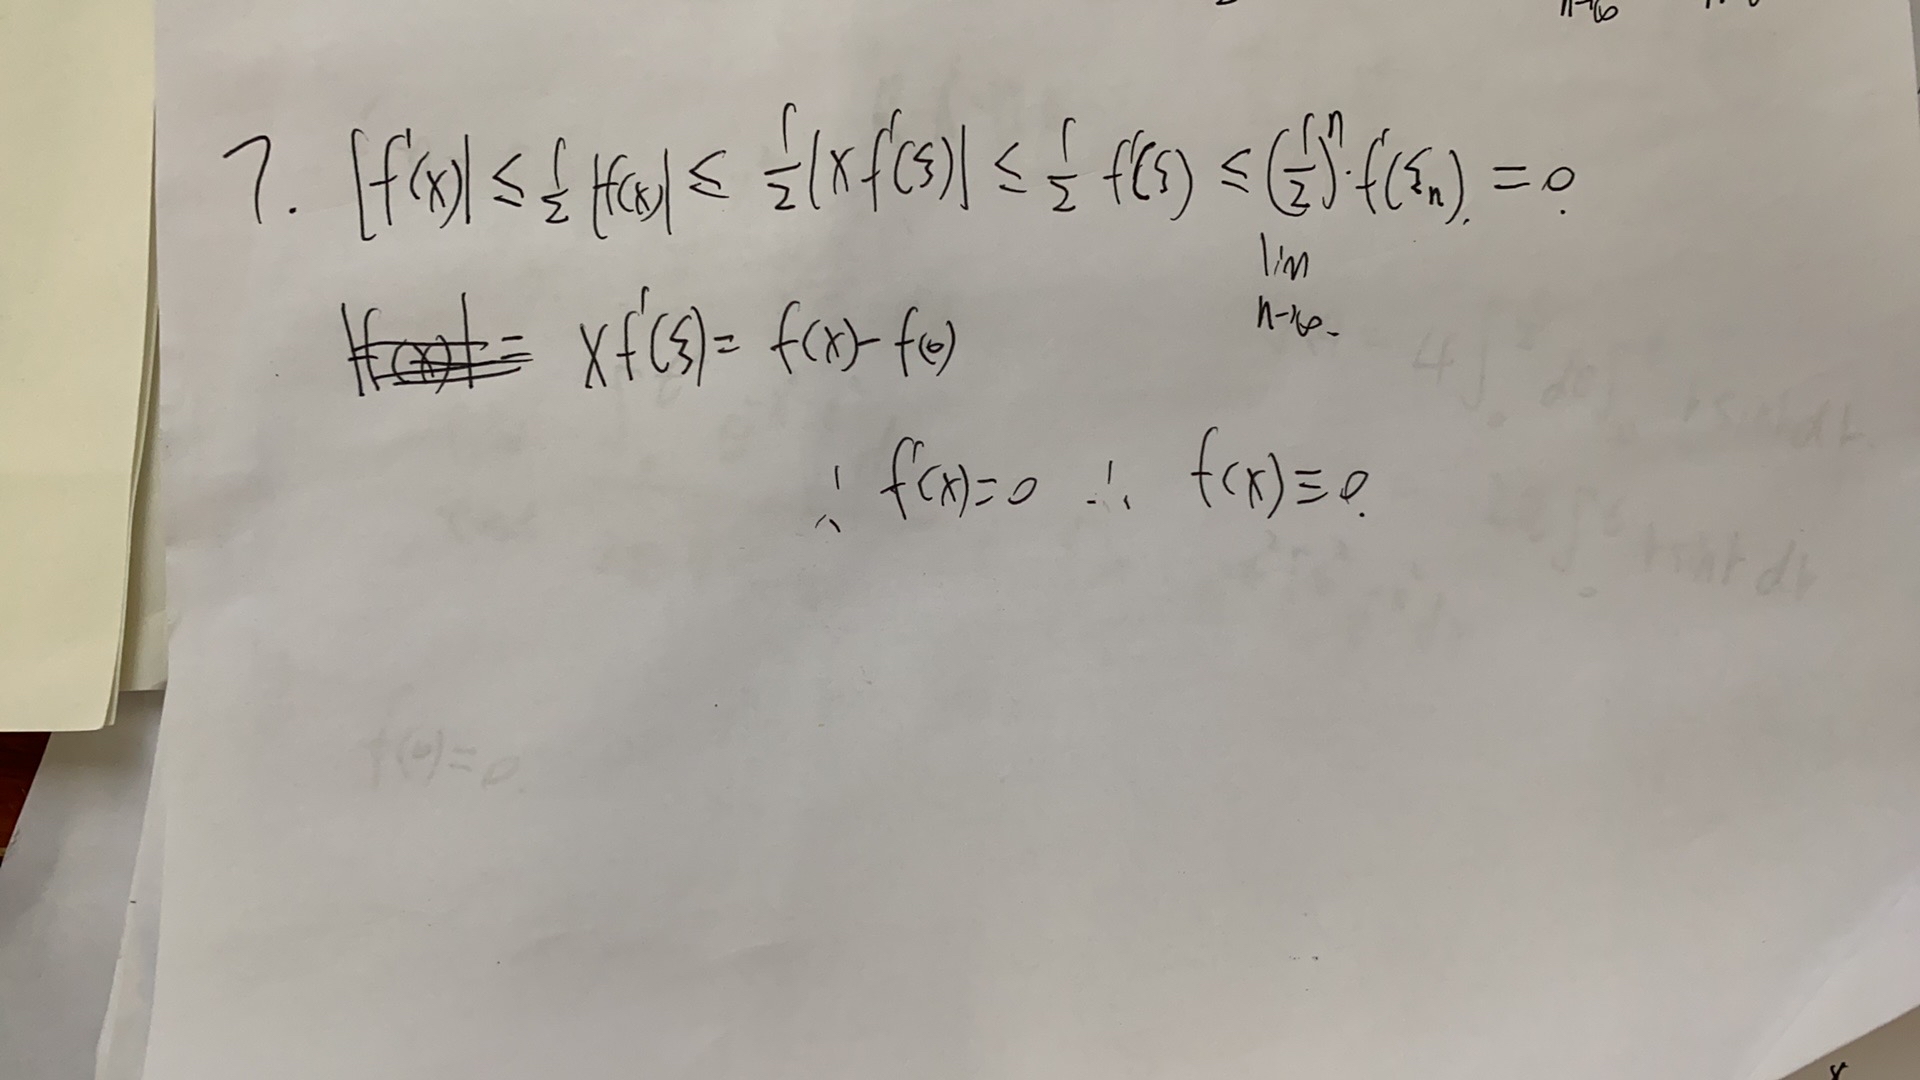 n→∞
7. |f'(x)| ≤ 1/2 |f(x)| ≤ 1/2 |x f'(ξ)| ≤ 1/2 f'(ξ) ≤ (1/2)^n · f'(ξ_n) = 0.
lim
n→∞
x f'(ξ) = f(x) - f(0)
∴ f'(x) = 0 ∴ f(x) ≡ 0.
f(0) = 0